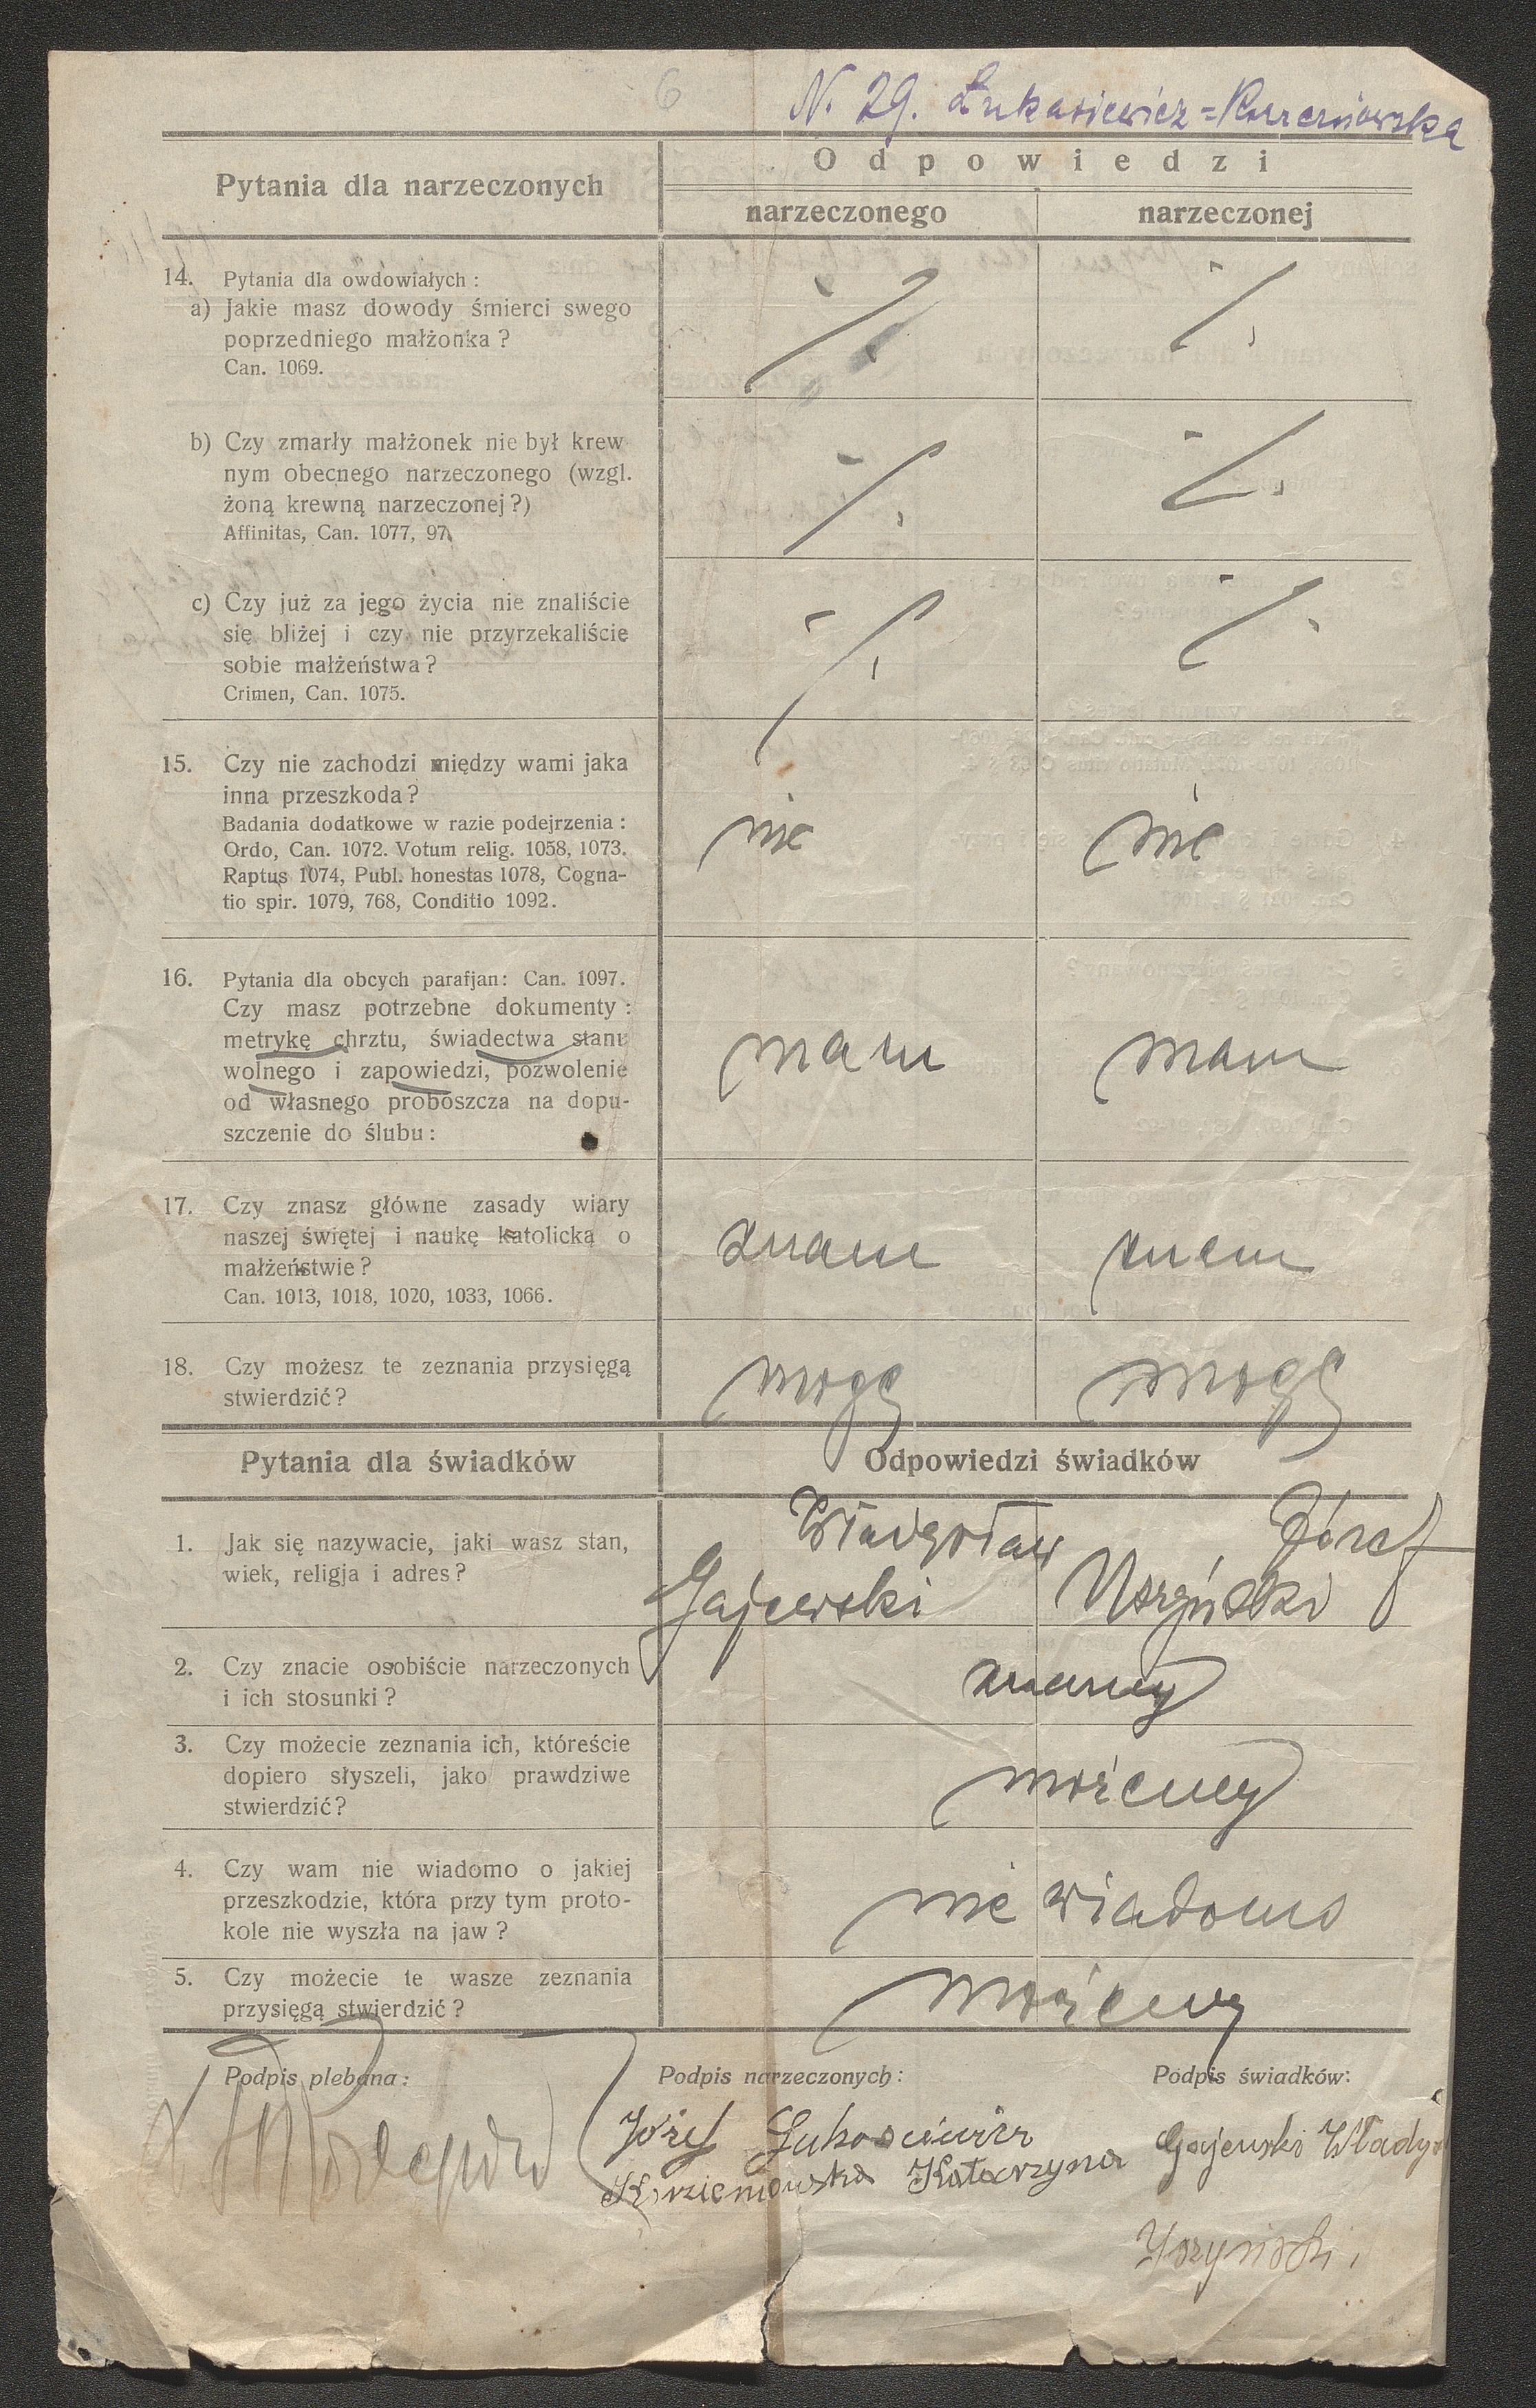 6
N. 29. Łukasiewicz =
Pytania dla narzeczonych
Odpowiedzi
narzeczonego
narzeczonej
14. Pytania dla owdowiałych :
a) Jakie masz dowody śmierci swego
poprzedniego małżonka ?
Can. 1069.
b) Czy zmarły małżonek nie był krew
nym obecnego narzeczonego (wzgl.
żoną krewną narzeczonej ?)
Affinitas, Can. 1077, 97.
c) Czy już za jego życia nie znaliście
się bliżej i czy nie przyrzekaliście
sobie małżeństwa ?
Crimen, Can. 1075.
15. Czy nie zachodzi między wami jaka
inna przeszkoda ?
Badania dodatkowe w razie podejrzenia :
Ordo, Can. 1072. Votum relig. 1058, 1073.
Raptus 1074, Publ. honestas 1078, Cogna-
tio spir. 1079, 768, Conditio 1092.
nie
nie
16. Pytania dla obcych parafjan: Can. 1097.
Czy masz potrzebne dokumenty :
metrykę chrztu, świadectwa stanu
wolnego i zapowiedzi, pozwolenie
od własnego proboszcza na dopu-
szczenie do ślubu :
mam
mam
17. Czy znasz główne zasady wiary
naszej świętej i naukę katolicką o
małżeństwie ?
Can. 1013, 1018, 1020, 1033, 1066.
znam
znam
18. Czy możesz te zeznania przysięgą
stwierdzić ?
mogę
mogę
Pytania dla świadków
Odpowiedzi świadków
1. Jak się nazywacie, jaki wasz stan,
wiek, religja i adres ?
Władysław
Gajewski
Józef
2. Czy znacie osobiście narzeczonych
i ich stosunki ?
znamy
3. Czy możecie zeznania ich, któreście
dopiero słyszeli, jako prawdziwe
stwierdzić ?
możemy
4. Czy wam nie wiadomo o jakiej
przeszkodzie, która przy tym proto-
kole nie wyszła na jaw ?
nie wiadomo
5. Czy możecie te wasze zeznania
przysięgą stwierdzić ?
możemy
Podpis plebana :
Podpis narzeczonych :
Józef Łukasiewicz
Katarzyna
Podpis świadków:
Gajewski Władys